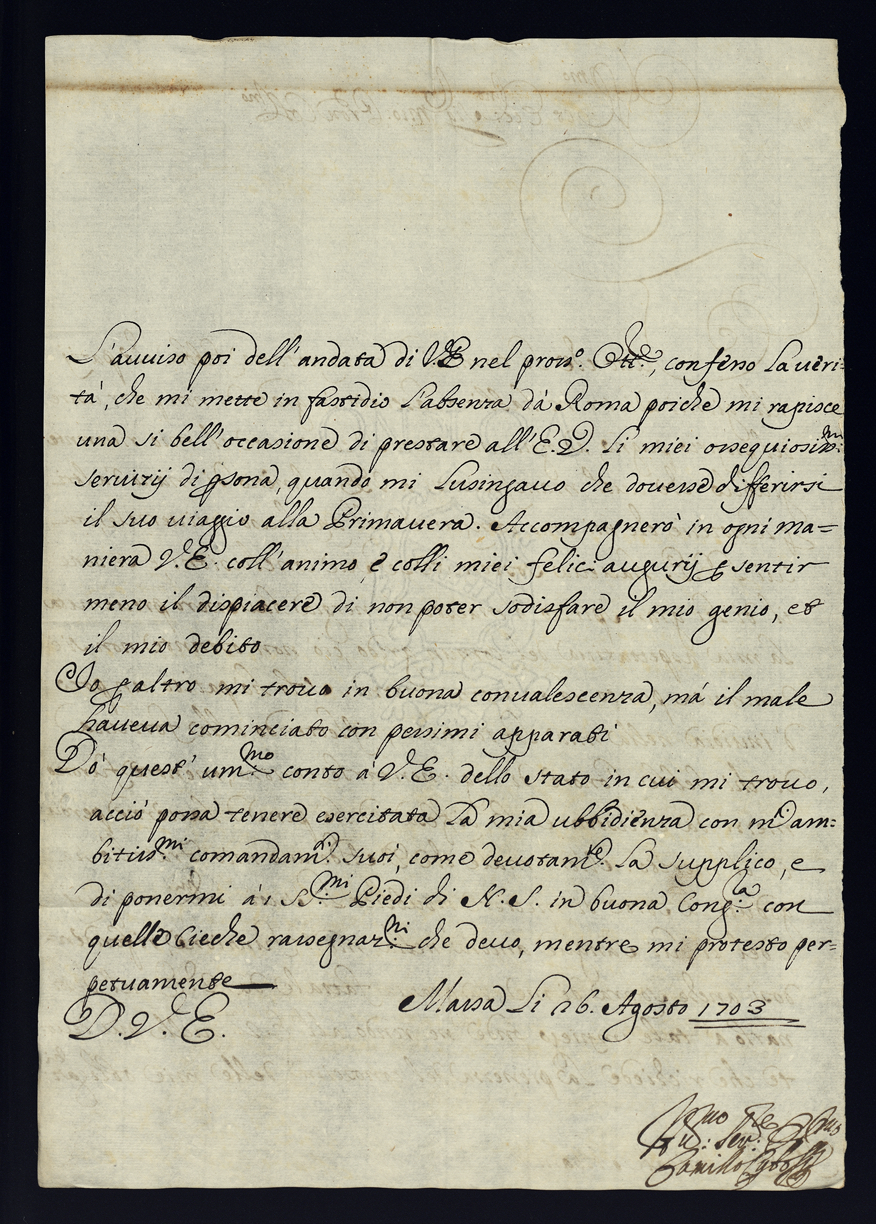 L'avviso poi dell'andata di V.E. nel pross.º Ott.e, confesso la veri=
tà, che mi mette in fastidio l'absenza dà Roma poiche mi rapisce
una si bell'occasione di prestare all'E.V. li miei ossequiosiss.mi
servitij di psona, quando mi lusingavo che dovesse differirsi
il suo viaggio alla Primavera. Accompagnerò in ogni ma=
niera V.E. coll'animo, e colli miei felici augurij p sentir
meno il dispiacere di non poter sodisfare il mio genio, et
il mio debito
Io p altro mi trovo in buona convalescenza, má il male
haveva cominciato con pessimi apparati
Dò quest'um.mo conto á V.E. dello stato in cui mi trovo,
acciò possa tenere esercitata la mia ubbidienza con m.i am=
bitiss.mi comandam.ti suoi, come devotam.te la supplico, e
di ponermi á i SS.mi Piedi di N.S. in buona Cong.ra con
quelle cieche rassegnaz.ni che devo, mentre mi protesto per=
petuamente
D.V.E. Massa li 26. Agosto 1703
Camillo Cybo